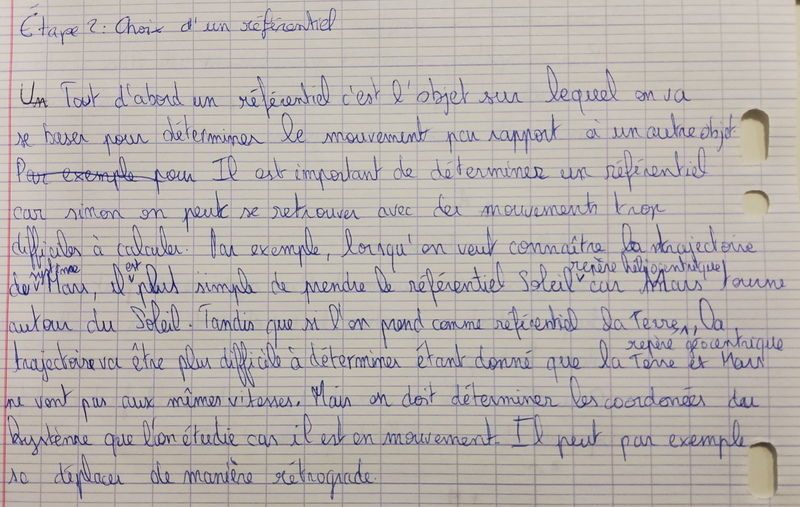 Étape 2 : Choix d'un référentiel
Un Tout d'abord un référentiel c'est l'objet sur lequel on va
se baser pour déterminer le mouvement par rapport à un autre objet.
Par exemple pour Il est important de déterminer un référentiel
car sinon on peut se retrouver avec des mouvements trop
difficiles à calculer. Par exemple, lorsqu'on veut connaître la trajectoire
du système Mars, il est plus simple de prendre le référentiel Soleil (repère héliocentrique) car Mars tourne
autour du Soleil. Tandis que si l'on prend comme référentiel la Terre, la
repère géocentrique
trajectoire va être plus difficile à déterminer étant donné que la Terre et Mars
ne vont pas aux mêmes vitesses. Mais on doit déterminer les coordonées du
système que l'on étudie car il est en mouvement. Il peut par exemple
se déplacer de manière rétrograde.